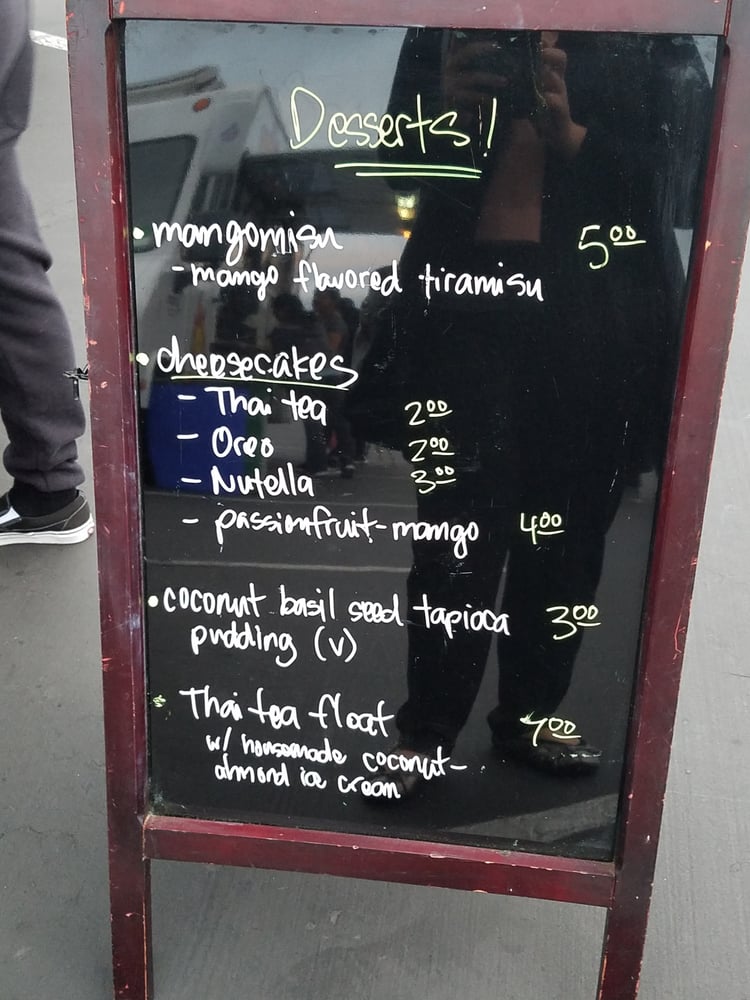 Desserts!
• mangomisu 5.00
- mango flavored tiramisu
• cheesecakes
- Thai tea 2.00
- Oreo 2.00
- Nutella 3.00
- passionfruit-mango 4.00
• coconut basil seed tapioca 3.00
pudding (v)
Thai tea float
w/ housemade coconut-
almond ice cream